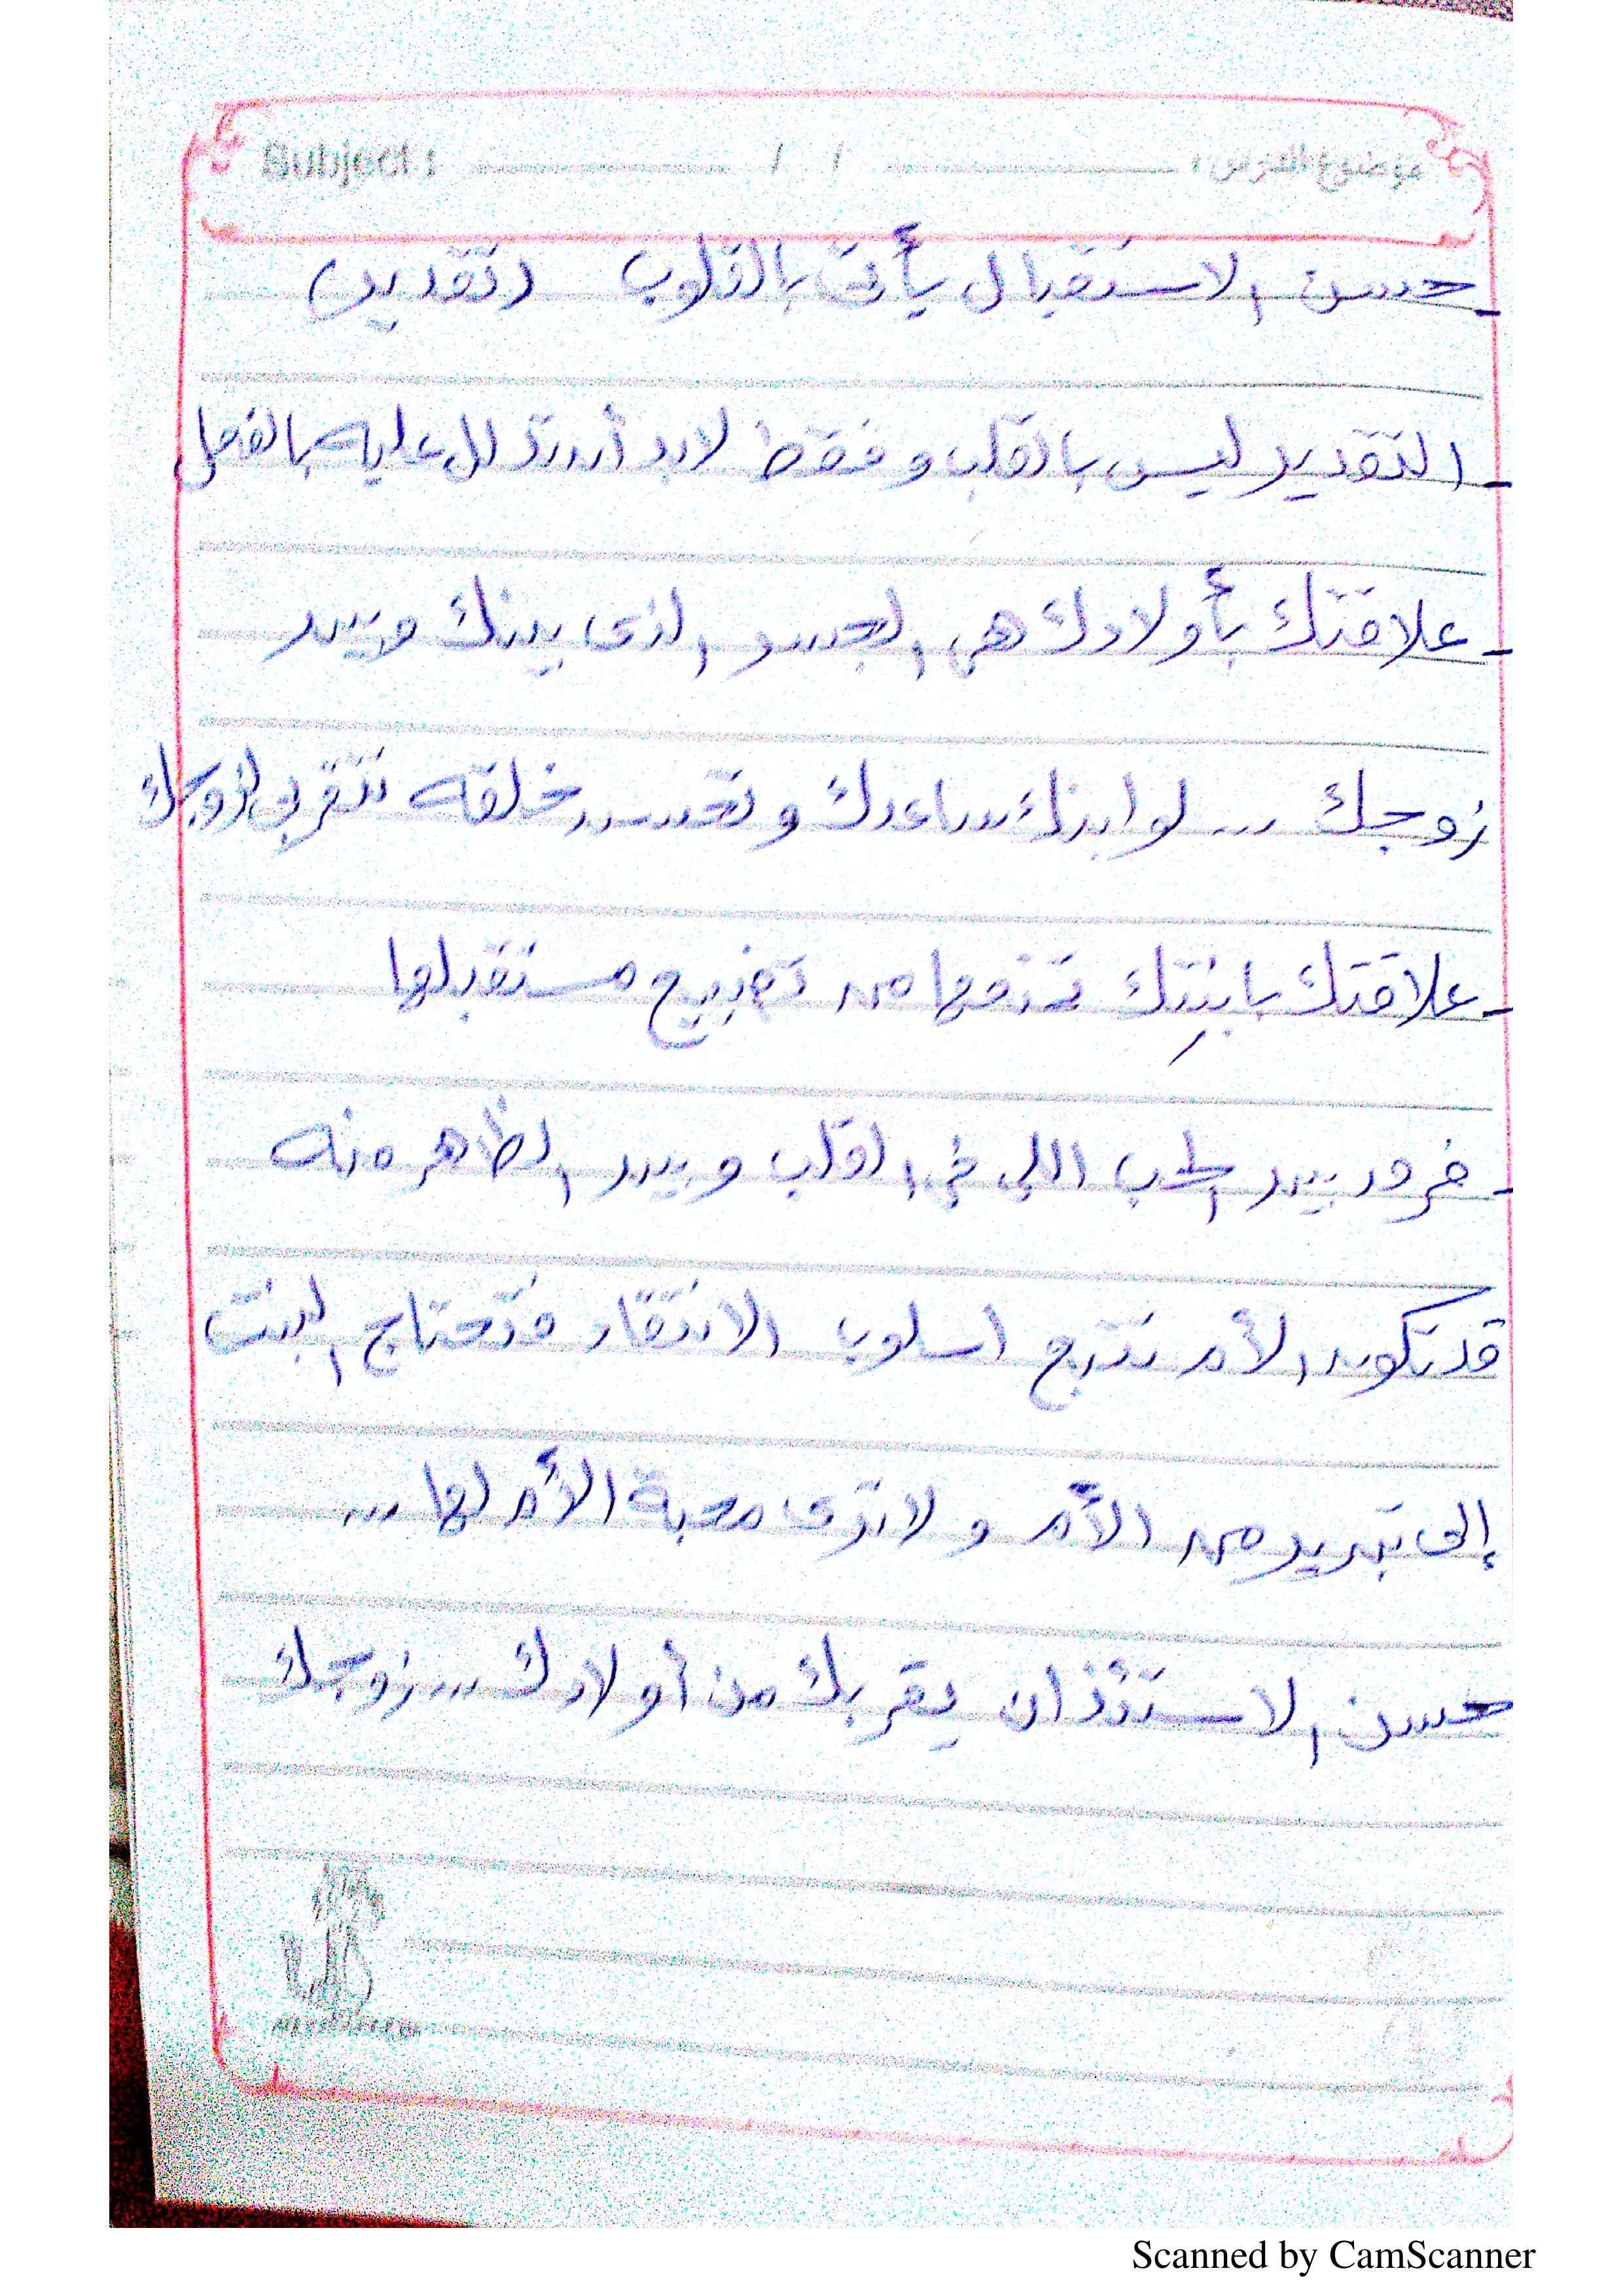 Subject : / / موضوع الدرس :
- حسن الاستقبال يأتى بالقلوب (تقدير)
- التقدير ليس بالقلب وفقط لابد أن تدلل عليه بالفعل
- علاقتك بأولادك هى الجسر الذى بينك وبين
زوجك ... لو ابنك ساعدك وتحسن خلقه تتقربى لزوجك
- علاقتك بابنتك تمنعها من تضييع مستقبلها
- فرق بين الحب اللي في القلب وبين الظاهر منه
قد تكون الأم تتبع اسلوب الانتقاد فتحتاج البنت
إلى تبريد من الأم ولا ترى محبة الأم لها ...
حسن الاستئذان يقربك من أولادك ... زوجك
Scanned by CamScanner